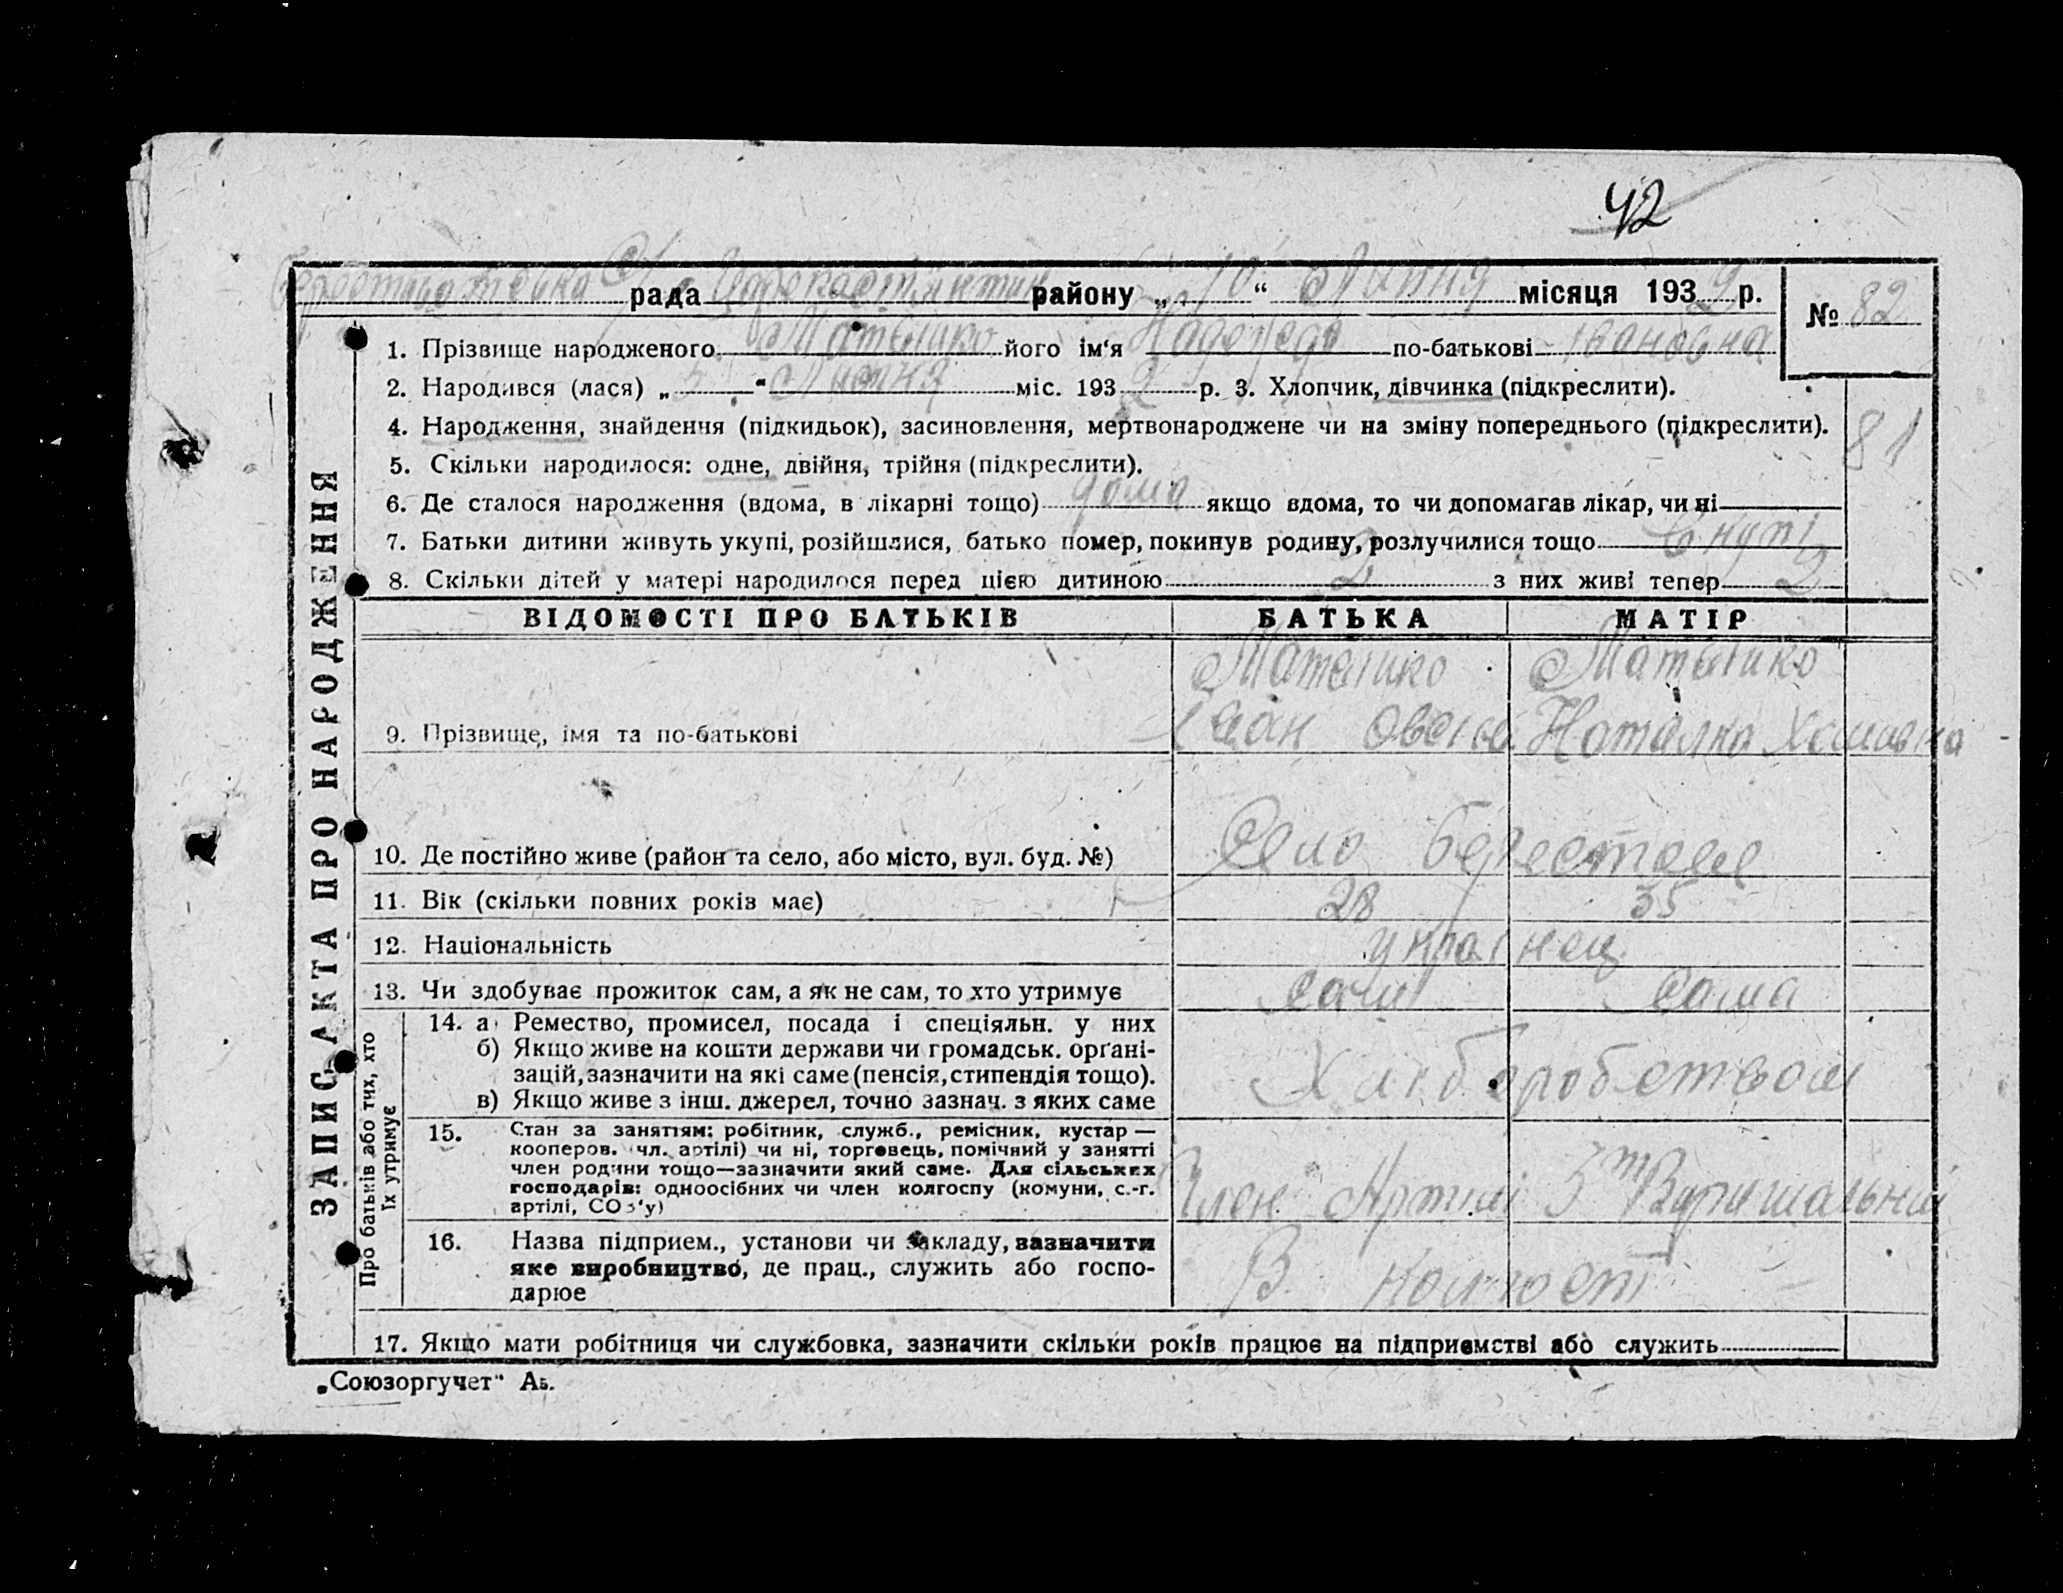 42
рада району „ 10 “ Липня місяця 1939 р.
№ 82
1. Прізвище народженого його ім‘я Надежда по-батькові Івановна
2. Народився (лася) „ 5 “ Липня міс. 193 р. 3. Хлопчик, дівчинка (підкреслити).
4. Народження, знайдення (підкидьок), засиновлення, мертвонароджене чи на зміну попереднього (підкреслити).
81
5. Скільки народилося: одне, двійня, трійня (підкреслити).
6. Де сталося народження (вдома, в лікарні тощо) дома якщо вдома, то чи допомагав лікар, чи ні
7. Батьки дитини живуть укупі, розійшлися, батько помер, покинув родину, розлучилися тощо
8. Скільки дітей у матері народилося перед цією дитиною 2 з них живі тепер 2
ВІДОМОСТІ ПРО БАТЬКІВ БАТЬКА МАТІР
9. Прізвище, імя та по-батькові Наталка Хомивна
10. Де постійно живе (район та село, або місто, вул. буд. №) Село
11. Вік (скільки повних років має) 28 35
12. Національність украінец
13. Чи здобуває прожиток сам, а як не сам, то хто утримує сам сама
14. а) Ремество, промисел, посада і спеціяльн. у них
б) Якщо живе на кошти держави чи громадськ. орґані-
зацій, зазначити на які саме (пенсія, стипендія тощо).
в) Якщо живе з інш. джерел, точно зазнач. з яких саме
Хлібаробством
15. Стан за заняттям: робітник, служб., ремісник, кустар —
кооперов. чл. артілі) чи ні, торговець, помічний у занятті
член родини тощо—зазначити який саме. Для сільських
господарів: одноосібних чи член колгоспу (комуни, с.-г.
артілі, СОЗ‘у)
Член Артилі
16. Назва підприєм., установи чи закладу, зазначити
яке виробництво, де прац., служить або госпо-
дарює
В
17. Якщо мати робітниця чи службовка, зазначити скільки років працює на підприємстві або служить
ЗАПИС АКТА ПРО НАРОДЖЕННЯ
Про батьків або тих, хто
їх утримує
„Союзоргучет“